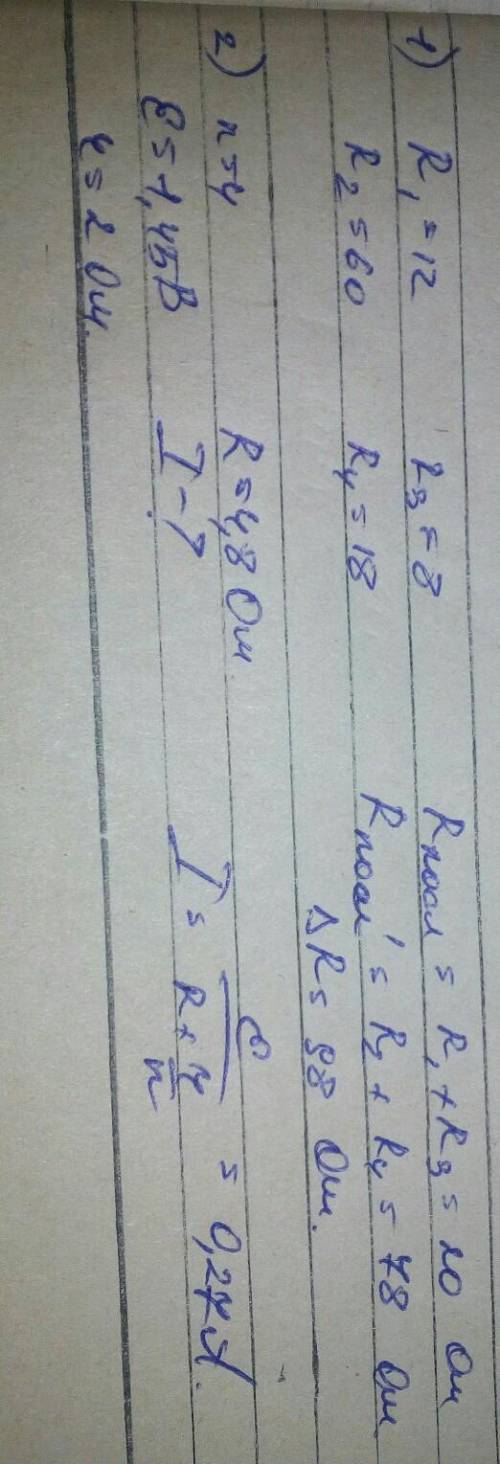 1) R₁ = 12 R₃ = 8 Rпосл = R₁ + R₃ = 20 Ом
R₂ = 60 R₄ = 18 Rпосл' = R₂ + R₄ = 78 Ом
ΔR = 98 Ом.
2) n = 4 R = 4,8 Ом
ℰ = 1,45В I - ? I = ℰ / (R + r/n) = 0,27А.
r = 2 Ом.